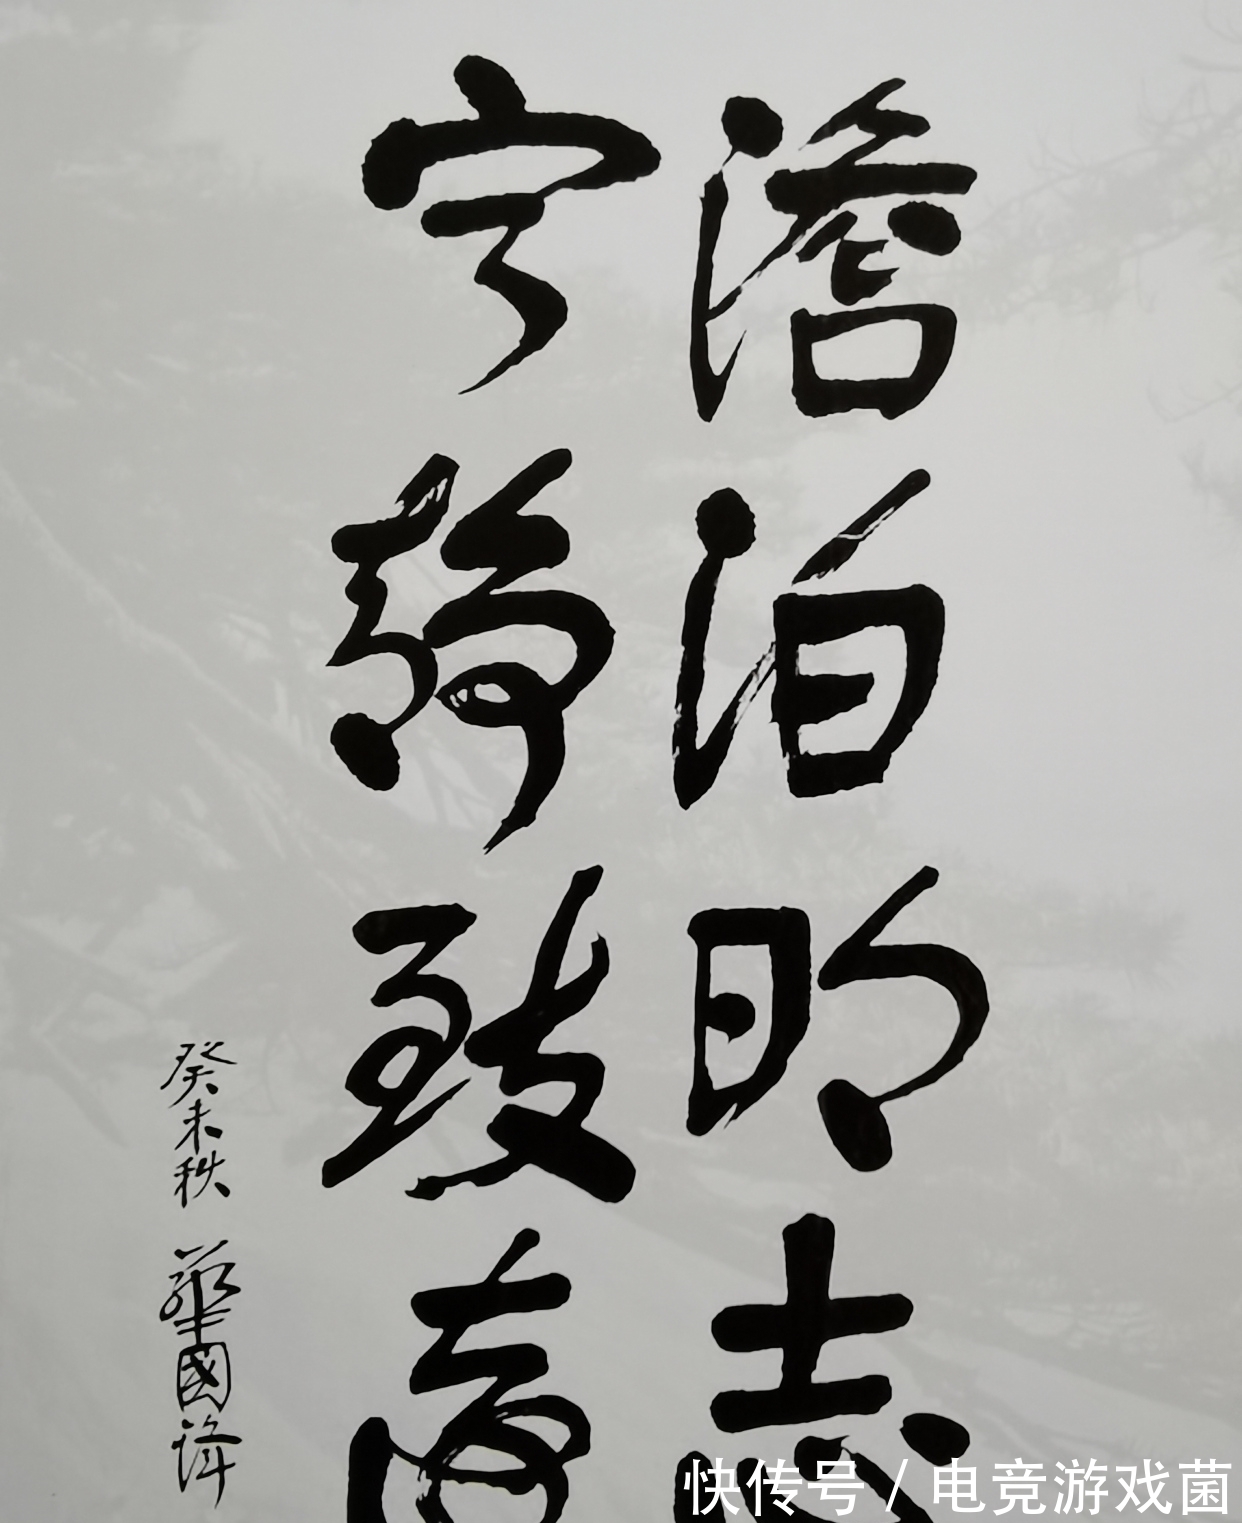 澹泊明志
宁静致遠
癸未秋 華國鋒
快传号 / 电竞游戏菌